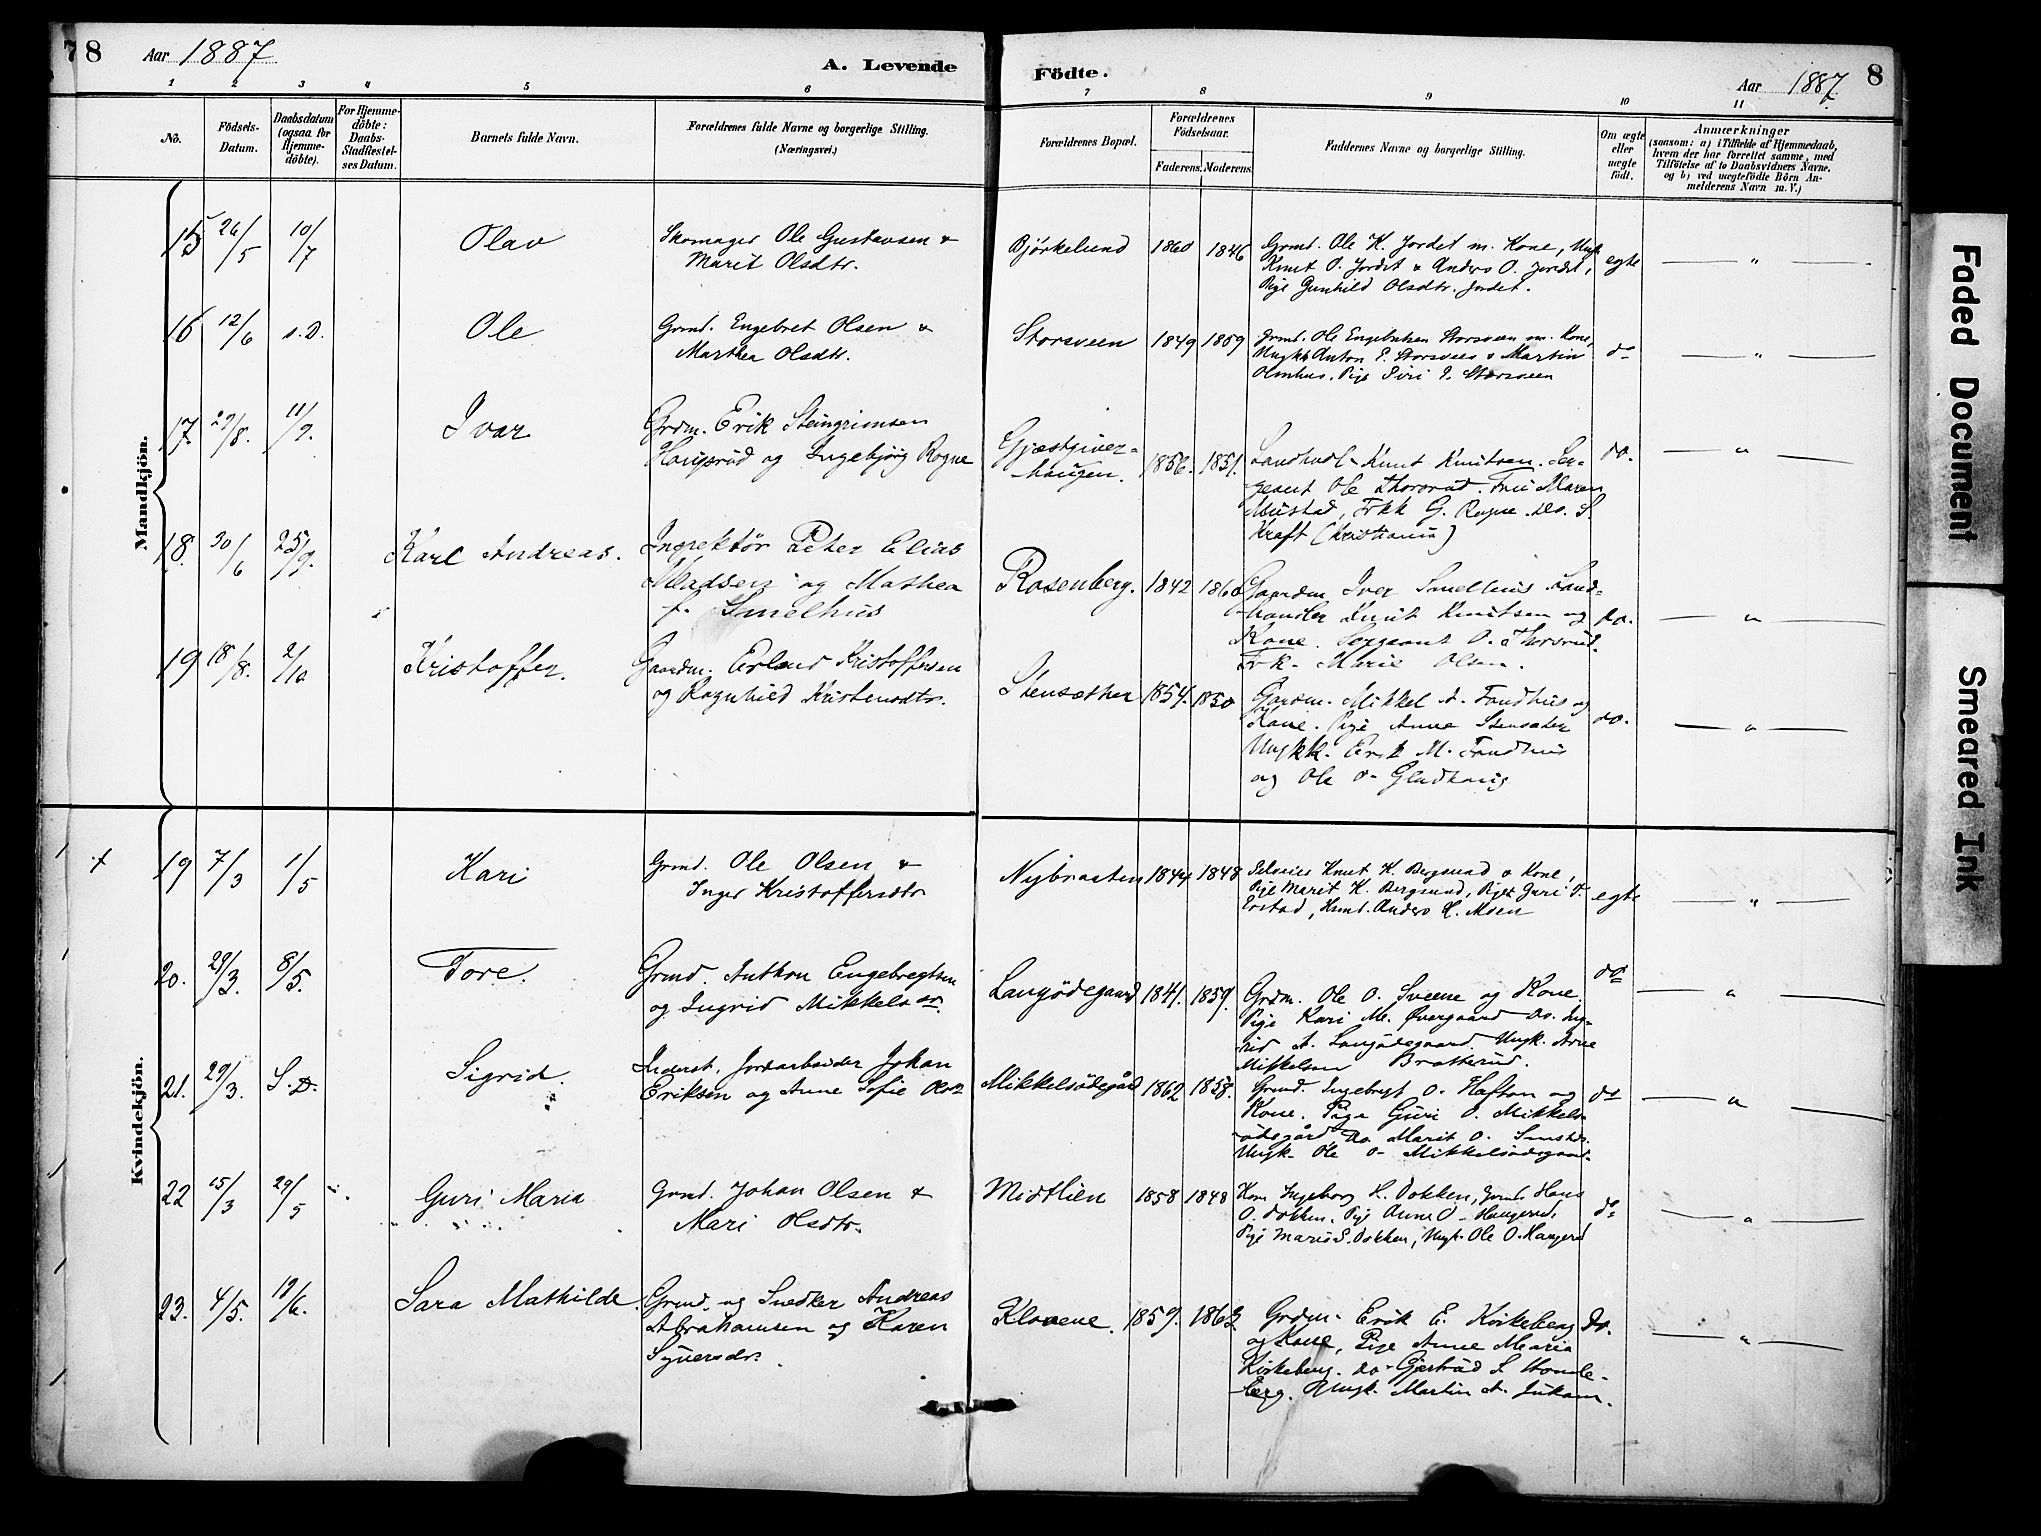 78 Aar 1887 A. Levende Födte. Aar 1887. 8
1 2 3 4 5 6 7 8 9 10 11
No.
Födsels-
Datum.
Daabsdatum
(ogsaa for
Hjemme-
döbte).
For Hjemme-
döbte:
Daabs-
Stadfæstel-
ses Datum.
Barnets fulde Navn.
Forældrenes fulde Navne og borgerlige Stilling.
(Næringsvei.)
Forældrenes Bopæl.
Forældrenes
Födselsaar.
Faderens. Moderens.
Faddernes Navne og borgerlige Stilling.
Om ægte
eller
uægte
födt.
Anmærkninger
(saasom: a) i Tilfælde af Hjemmedaab,
hvem der har forrettet samme, med
Tilföielse af to Daabsvidners Navne.
og b) ved uægtefödte Börn An-
melderens Navn m. V.)
Mandkjön.
15 26/5 10/7 Olav
Skomager Ole Gustavsen &
Marit Olsdtr.
Bjørkelund 1860 1846
Grmd. Ole K. Jordet m. Kone, Ungk.
Knut O. Jordet & Anders O. Jordet,
Pige Gunhild Olsdtr. Jordet.
egte — " —
16 12/6 s.D. Ole
Grmd. Engebret Olsen &
Marthea Olsdtr.
Storsveen 1849 1859
Grmd. Ole Engebretsen Storsveen m. Kone,
Ungkk Anton E. Storsveen & Martin
Olmhus. Pige Siri E. Storsveen
do — " —
17. 29/8. 11/9. Ivar
Grdm. Erik Steingrimsen
Haugsrud og Ingebjörg Rogne
Gjæstgiver-
haugen. 1856. 1851.
Landhdl. Knut Knutsen. Ser-
geant Ole Thorsrud. Fru Maren
Mustad, Frkk G. Rogne. Do. S.
Kraft (Kristiania)
do. — " —
18. 30/6 25/9. Karl Andreas.
Inspektör Peter Elias
Madsen og Mathea
f. Smelhus
Rosenberg. 1842
Gaardm. Iver Smelhus Land-
handler Knut Knutsen og
Kone. Sergeant O. Thorsrud.
Frk. Marie Olsen.
do. — " —
19 18/8. 2/10 Kristoffer.
Gaardm. Erland Kristoffersen
og Ragnhild Kristensdtr.
Stensæther 1854. 1850
Gardm. Mikkel A. Fondhus og
Kone. Pige Anne Stensæter
Ungkk. Erik M. Fondhus
og Ole O. Gladhaug
do. — " —
Kvindekjön.
+ 19 7/3 1/5 Kari
Grmd. Ole Olsen &
Inger Kristoffersdtr
Nybraaten 1844 1848
Selveier Knut K. Bergsund & Kone,
Pige Marit K. Bergsund, Pige Guri T.
Erstad, Hmt. Anders H. Moen
egte — " —
20. 29/3. 8/5. Tore.
Grmd. Anthon Engebregtsen
og Ingrid Mikkelsdr.
Langödegaard 1841. 1859.
Grdm. Ole O. Sveene og Kone.
Pige Kari M. Øvergaard Do. Ing-
rid A. Langödegaard. Ungk. Arne
Mikkelsen Bratterud.
do — " —
21. 29/3. S.D. Sigrid.
Inderst, Jordarbeider Johan
Eriksen og Anne Sofie Olsdr
Mikkelsödegård 1862 1858.
Grmd. Ingebrgt O. Hafton og
Kone. Pige Guri O. Mikkels-
ödegård, Do Marit O.
Ungk. Ole O. Mikkelsödegaard.
do — " —
22 15/3 29/5 Guri Maria
Grmd. Johan Olsen &
Mari Olsdtr.
Midtlien 1858 1848
Kone Ingeborg H. Dokken, Grmd. Hans
O. Dokken. Pige Anne O. Haugerud,
Pige Marie S. Dokken, Ungk. Ole O. Haugerud
do — " —
23. 4/5. 19/6. Sara Mathilde.
Grmd. og Snedker Andreas
Abrahamsen og Karen
Syversdr.
Klovene. 1859. 1863
Grdm. Erik E. Kirkeberg
og Kone, Pige Anne Maria
Kirkeberg. Do Gjertrud S.
berg. Ungk. Martin A.
Do. — " —
Faded Document
Smeared Ink